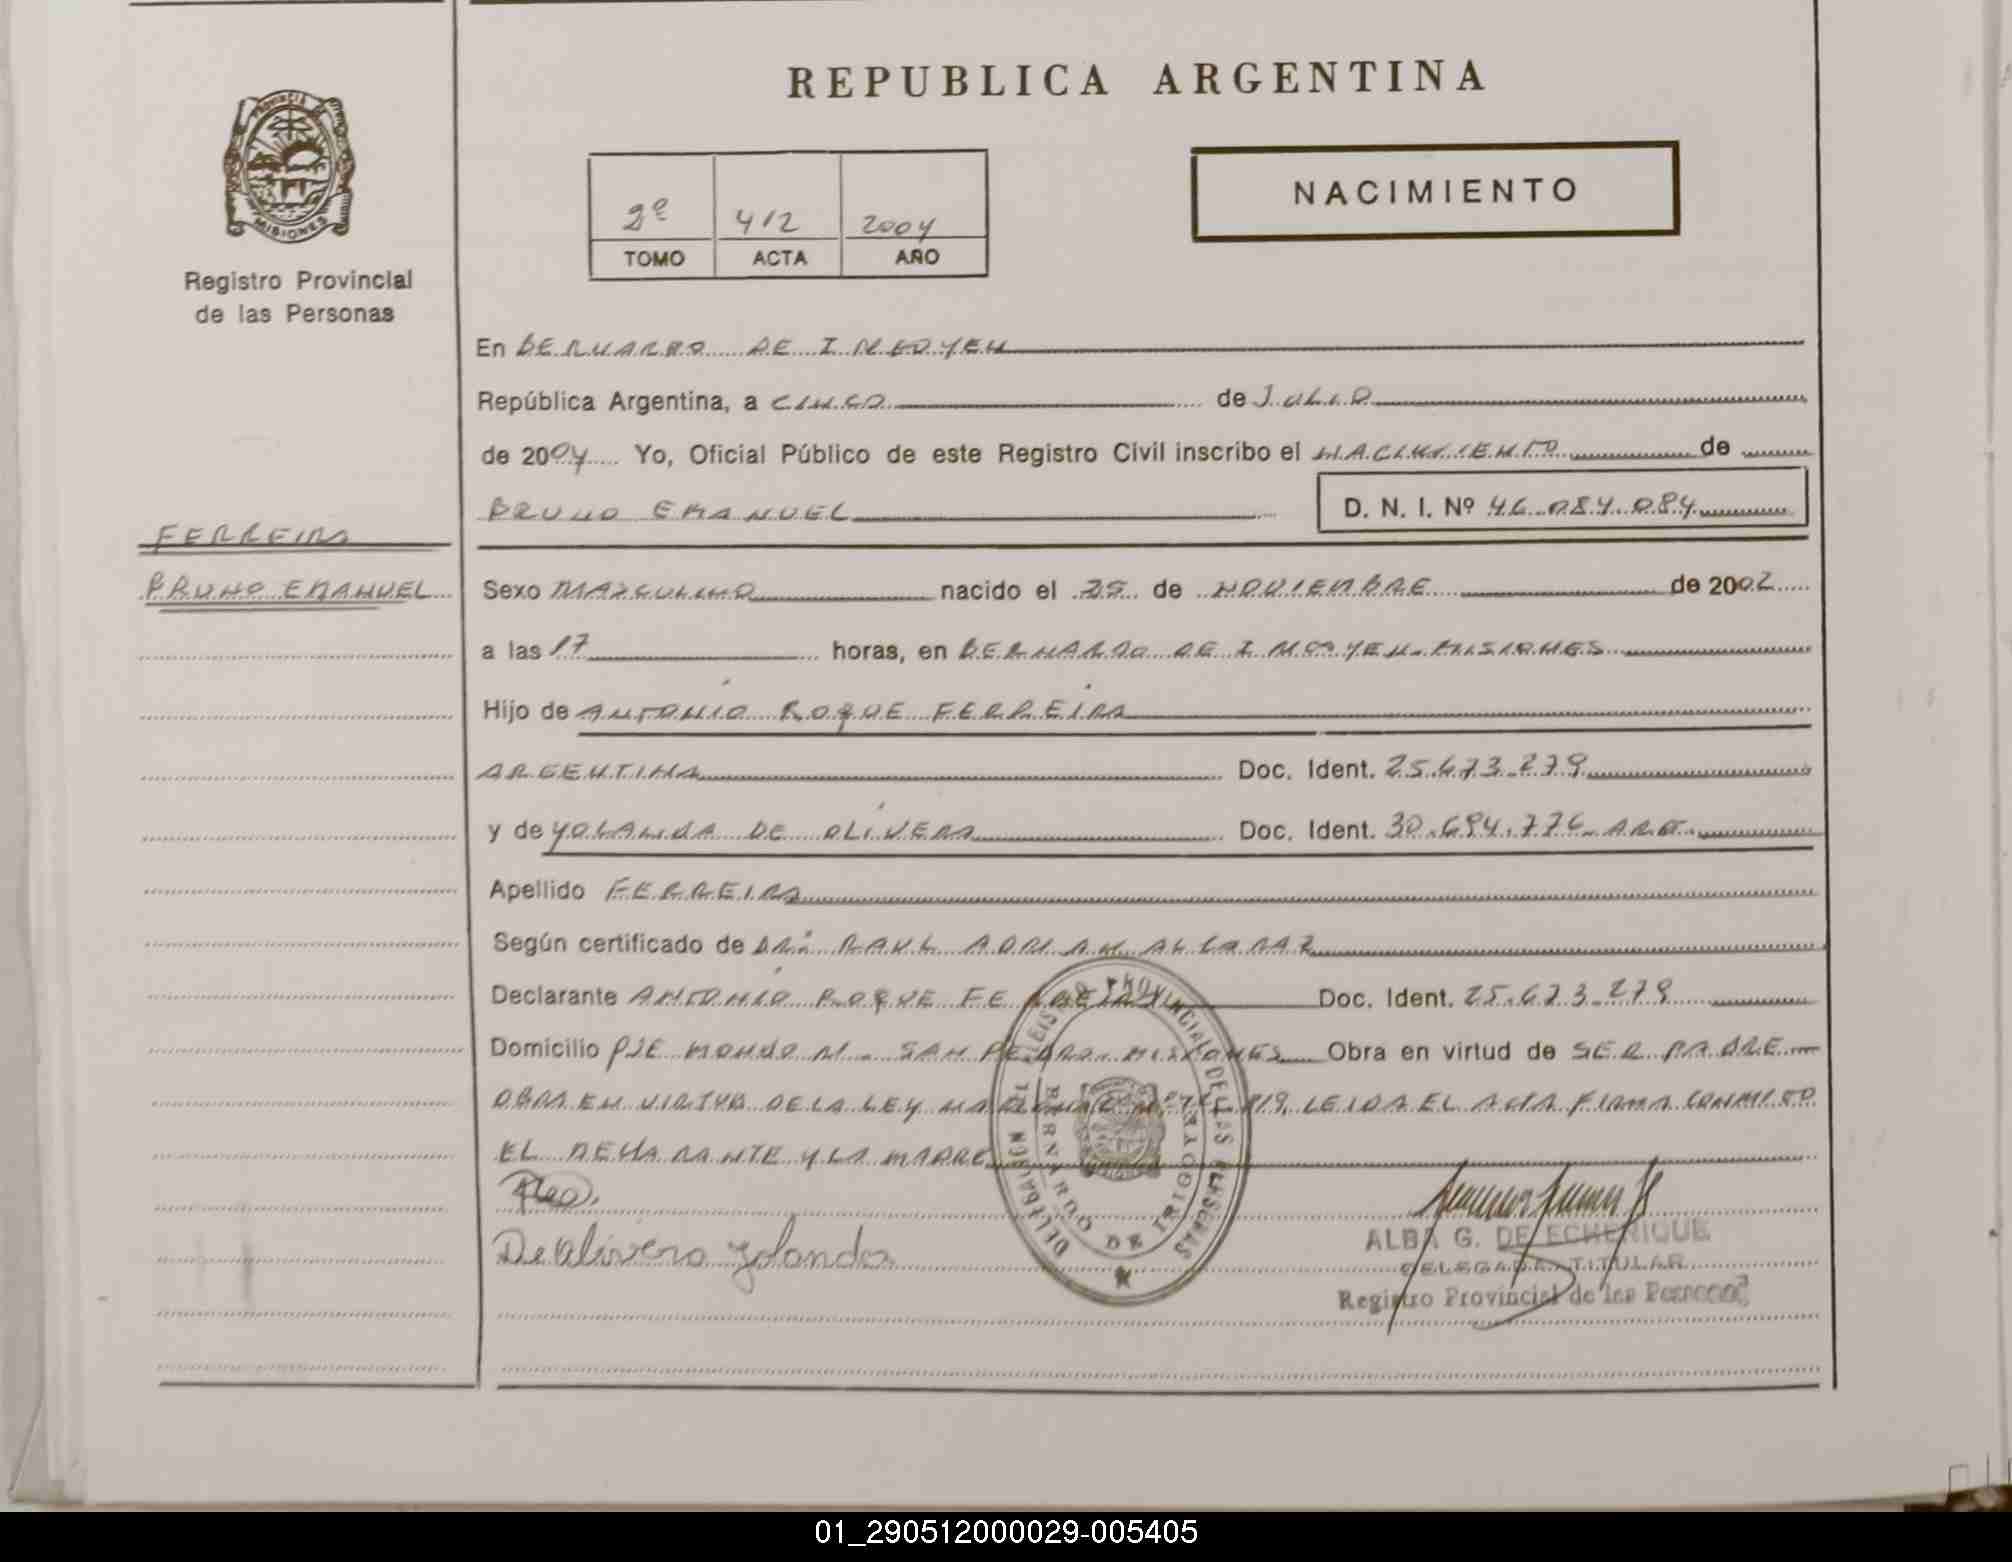 REPUBLICA ARGENTINA
PROVINCIA DE
MISIONES
Registro Provincial
de las Personas
NACIMIENTO
2º 412 2004
TOMO ACTA AÑO
En BERNARDO DE IRIGOYEN
República Argentina, a CINCO de JULIO
de 2004 Yo, Oficial Público de este Registro Civil inscribo el NACIMIENTO de
BRUNO EMANUEL D. N. I. Nº 46.084.084
FERREIRA
BRUNO EMANUEL
Sexo MASCULINO nacido el 25 de NOVIEMBRE de 2002
a las 17 horas, en BERNARDO DE IRIGOYEN-MISIONES
Hijo de ANTONIO ROQUE FERREIRA
ARGENTINA Doc. Ident. 25.673.279
y de YOLANDA DE OLIVERA Doc. Ident. 30.694.776 ARG.
Apellido FERREIRA
Según certificado de DR: RAUL ADRIAN ALCARAZ
Declarante ANTONIO ROQUE FERREIRA Doc. Ident. 25.673.279
Domicilio PJE MONDO M. - SAN PEDRO - MISIONES Obra en virtud de SER PADRE
OBRA EN VIRTUD DE LA LEY NACIONAL Nº 25.819. LEIDA EL ACTA FIRMA CONMIGO
EL DECLARANTE Y LA MADRE
De Olivera Yolanda
REGISTRO PROVINCIAL DE LAS PERSONAS
DELEGACION
BERNARDO DE IRIGOYEN
ALBA G. DE ECHERIQUE
DELEGADA TITULAR
Registro Provincial de las Personas
01_290512000029-005405